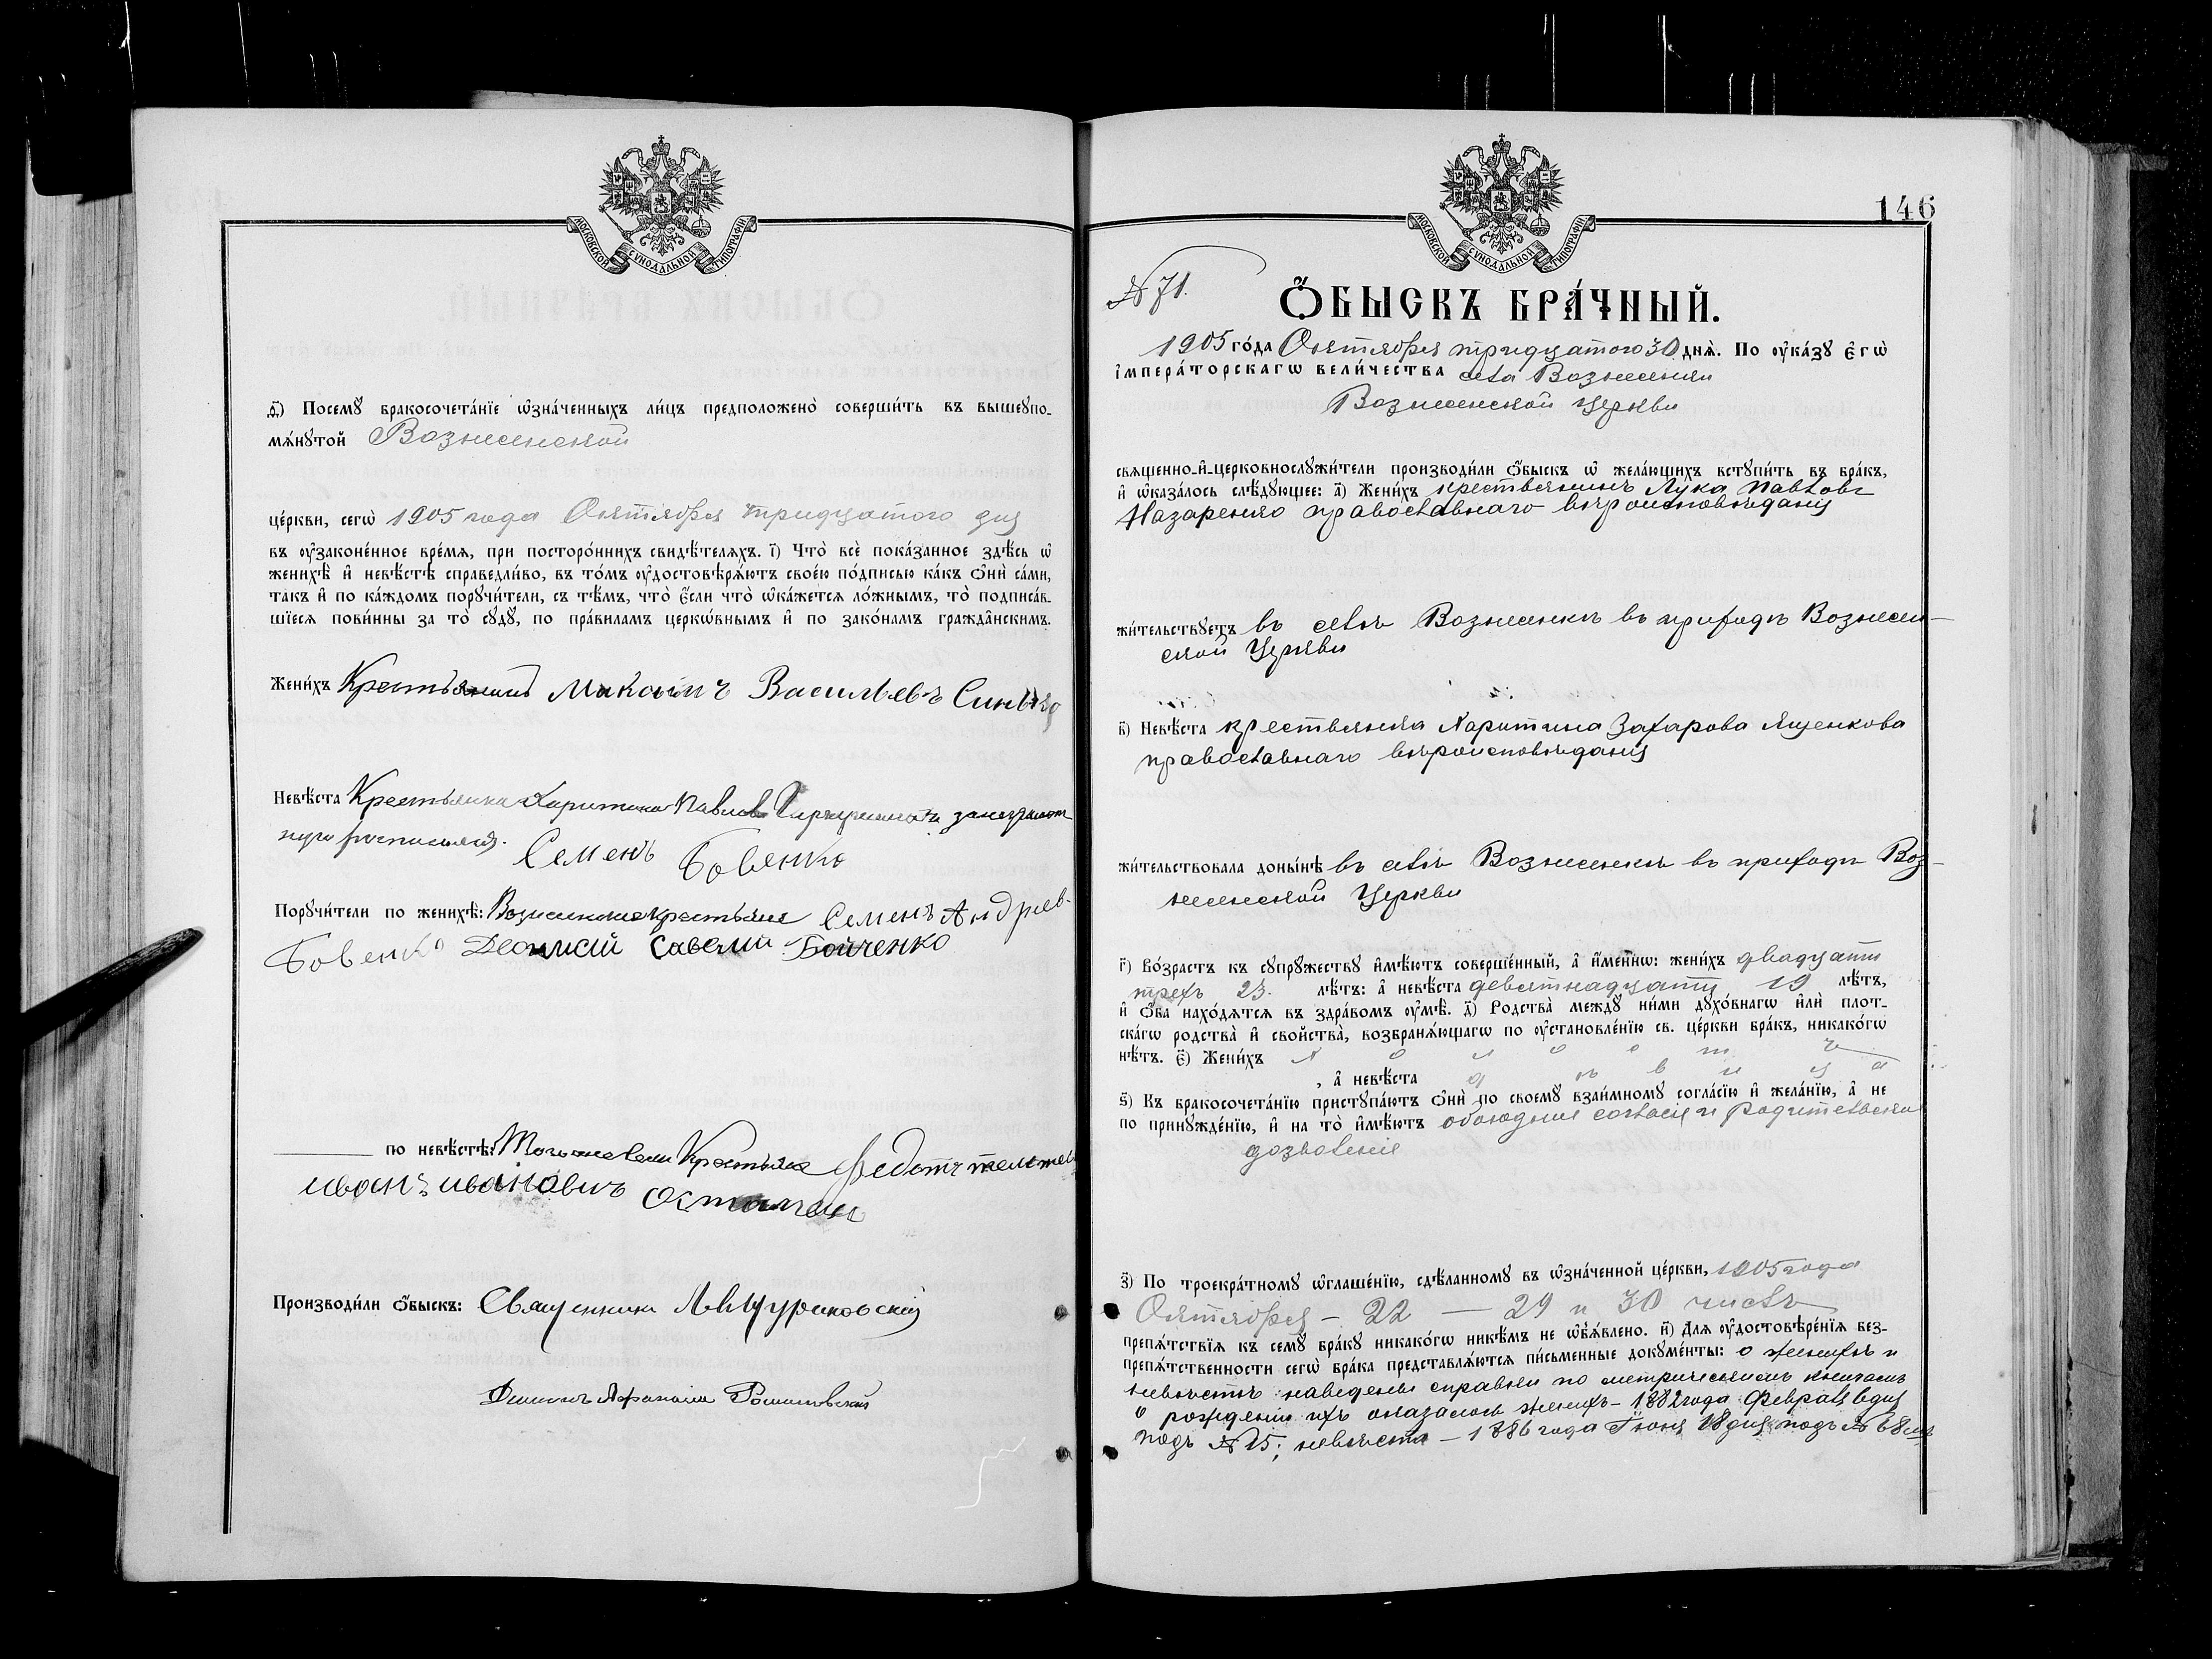 МОСКОВСКОЙ СѴНОДАЛЬНОЙ ТИПОГРАФІИ
ѳ҃) Посемꙋ бракосочета́нїе ѡ҆зна́ченныхъ ли́цъ предположено̀ соверши́ть въ вышеꙋпо-
мѧ́нꙋтой Вознесенской
це́ркви, сегѡ̀ 1905 года Октября тридцатого дня
въ ᲂу҆зако́ненное вре́мѧ, при посторо́ннихъ свидѣ́телѧхъ. і҃) Что̀ всѐ пока́занное здѣ́сь ѡ҆
женихѣ̀ и҆ невѣ́стѣ справедли́во, въ то́мъ ᲂу҆достовѣрѧ́ютъ свое́ю по́дписью ка́къ ѻ҆нѝ са́ми,
та́къ и҆ по ка́ждомъ порꙋчи́тели, съ тѣ́мъ, что̀ є҆́сли что̀ ѡ҆ка́жетсѧ ло́жнымъ, то̀ подписа́в-
шїесѧ пови́нны за то̀ сꙋдꙋ̀, по пра́виламъ церко́внымъ и҆ по зако́намъ гражда́нскимъ.
Жени́хъ Крестьянинъ Васильевъ
Невѣ́ста Крестьянка Харитина Павлова
росписался. Семенъ Бовенко
Порꙋчи́тели по женихѣ̀: крестьяне Семенъ Андреев-
Бовенко Дионисій Савелій Бойченко
по невѣ́стѣ: Крестьяне Федотъ
иванъ ивановичъ
Производи́ли ѻ҆́быскъ: Священникъ
Діаконъ Афанасій
146
МОСКОВСКОЙ СѴНОДАЛЬНОЙ ТИПОГРАФІИ
№ 71.
Ѻ҆́БЫСКЪ БРА́ЧНЫЙ.
1905 го́да Октября тридцатого 30 днѧ̀. По ᲂу҆ка́зꙋ є҆гѡ̀
і҆мпера́торскагѡ вели́чества села Вознесенки
Вознесенской Церкви
свѧщенно-и҆-церковнослꙋжи́тели производи́ли ѻ҆́быскъ ѡ҆ жела́ющихъ встꙋпи́ть въ бра́къ,
и҆ ѡ҆каза́лось слѣ́дꙋющее: а҃) Жени́хъ крестьянинъ Лука Павловъ
Назаренко православнаго вѣроисповѣданія
жи́тельствꙋетъ въ селѣ Вознесенкѣ въ приходѣ Вознесен-
ской Церкви
в҃) Невѣ́ста крестьянка Харитина Захарова Ященкова
православнаго вѣроисповѣданія
жи́тельствовала доны́нѣ въ селѣ Вознесенкѣ въ приходѣ Воз-
несенской Церкви
г҃) Во́зрастъ къ сꙋпрꙋ́жествꙋ и҆мѣ́ютъ соверше́нный, а҆ и҆́меннѡ: жени́хъ двадцати
трехъ 23. лѣ́тъ: а҆ невѣ́ста девятнадцати 19 лѣ́тъ,
и҆ ѻ҆́ба нахо́дѧтсѧ въ здра́вомъ ᲂу҆мѣ̀. д҃) Родства̀ междꙋ̀ ни́ми дꙋхо́внагѡ и҆лѝ плот-
ска́гѡ родства̀ и҆ свойства̀, возбранѧ́ющагѡ по ᲂу҆становле́нїю св. це́ркви бра́къ, никако́гѡ
нѣ́тъ. є҃) Жени́хъ холостъ
, а҆ невѣ́ста дѣвица
ѕ҃) Къ бракосочета́нїю пристꙋпа́ютъ ѻ҆нѝ по своемꙋ̀ взаи́мномꙋ согла́сїю и҆ жела́нїю, а҆ не
по принꙋжде́нїю, и҆ на то̀ и҆мѣ́ютъ обоюдное согласіе и родительское
дозволеніе
з҃) По троекра́тномꙋ ѡ҆глаше́нїю, сдѣ́ланномꙋ въ ѡ҆зна́ченной це́ркви, 1905 года
Октября - 22 — 29 и 30 числъ
препѧ́тствїѧ къ семꙋ̀ бра́кꙋ никако́гѡ никѣ́мъ не ѡ҆б̾ѧ́влено. и҃) Длѧ ᲂу҆достовѣре́нїѧ без-
препѧ́тственности сегѡ̀ бра́ка представлѧ́ютсѧ пи́сьменные докꙋме́нты: о женихѣ и
невѣстѣ наведены справки по метрическимъ книгамъ
о рожденіи ихъ оказалось женихъ - 1882 года Февраля 6 дня
подъ № 25; невѣста - 1886 года Іюня 18 дня подъ № 68